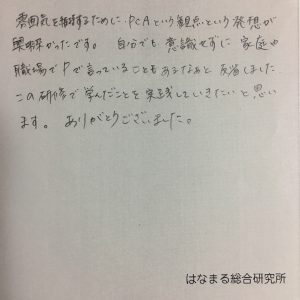 雰囲気を把握するために PCAという観点という発想が
興味深かったです。 自分でも 意識せずに 家庭や
職場で Pで言っていることもあるなあと 反省しました
この研修で学んだことを 実践していきたいと思い
ます。 ありがとうございました。
はなまる総合研究所